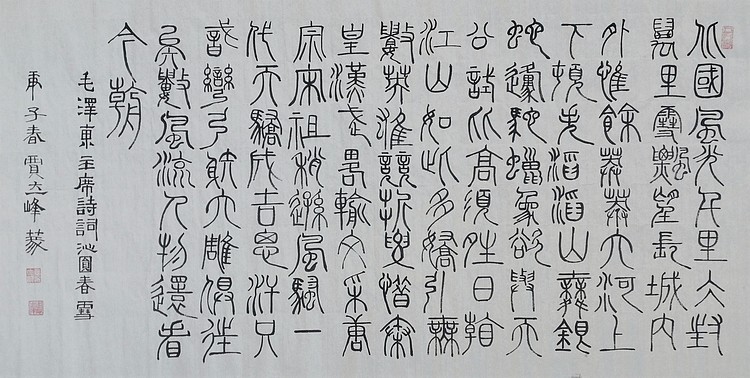 北國風光千里冰封
萬里雪飄望長城内
外惟餘莽莽大河上
下頓失滔滔山舞銀
蛇原馳蠟象欲與天
公試比高須晴日看
江山如此多嬌引無
數英雄競折腰惜秦
皇漢武略輸文采唐
宗宋祖稍遜風騷一
代天驕成吉思汗只
識彎弓射大雕俱往
矣數風流人物還看
今朝
毛澤東主席詩詞沁園春雪
庚子春賈峰篆